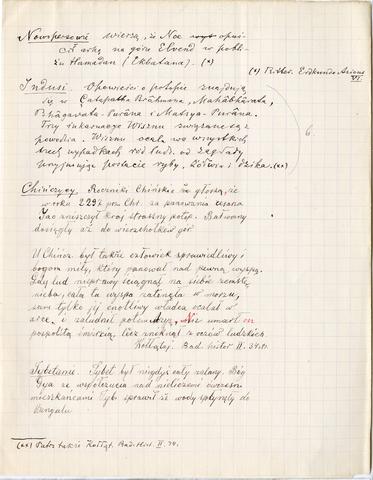 Nowopersowie wierzą, że Noe opuś-
cił arkę na górze Elvend w pobli-
żu Hamadan (Ekbatana). (*)
(*) Ritter. Erdkunde Asiens VI.
Indusi. Opowieści o potopie znajdują
się w Catapatha Brâhmana, Mahâbhârata,
Bhâgavata-Purâna i Matsya-Purâna.
Trzy inkarnacje Wisznu związane są z
powodzią. Wisznu ocala we wszystkich
trzech wypadkach ród ludz. od zagłady
przyjmując postacie ryby, żółwia i dzika. (**)
6.
Chińczycy. Roczniki Chińskie głoszą, że
w roku 2297 prz. Chr. za panowania cesarza
Jao zniszczył kraj straszny potop. Bałwany
dosięgły aż do wierzchołków gór.
U Chińcz. był także człowiek sprawiedliwy i
bogom miły, który panował nad pewną wyspą.
Gdy lud nieprawy ściągnął na siebie zemstę
nieba, cała ta wyspa zatonęła w morzu,
sam tylko jej cnotliwy władca ocalał w
arce i zaludnił potem kraj. Nie umarł on
pospolitą śmiercią, lecz zniknął z oczów ludzkich.
Kołłątaj. Bad. histor II. 34.
Tybetanie. Tybet był niegdyś cały zalany. Bóg
Gya ze współczucia nad nielicznemi ówczesn.
mieszkańcami Tyb. sprawił że wody spłynęły do
Bengalu.
(**) Patrz także Kołłąt. Bad. Hist. II. 34.